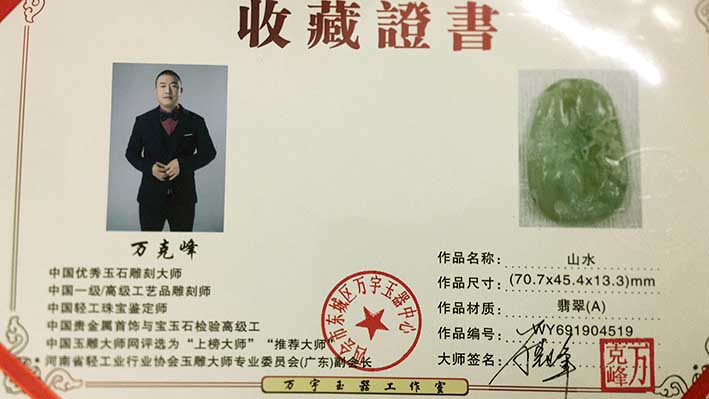 收藏證書
万克峰
中国优秀玉石雕刻大师
中国一级/高级工艺品雕刻师
中国轻工珠宝鉴定师
中国贵金属首饰与宝玉石检验高级工
中国玉雕大师网评选为“上榜大师”“推荐大师”
河南省轻工业行业协会玉雕大师专业委员会(广东)副会长
作品名称: 山水
作品尺寸: (70.7x45.4x13.3)mm
作品材质: 翡翠(A)
作品编号: WY691904519
大师签名:
万克峰
市东城区万宇玉器中心
万宇玉器工作室